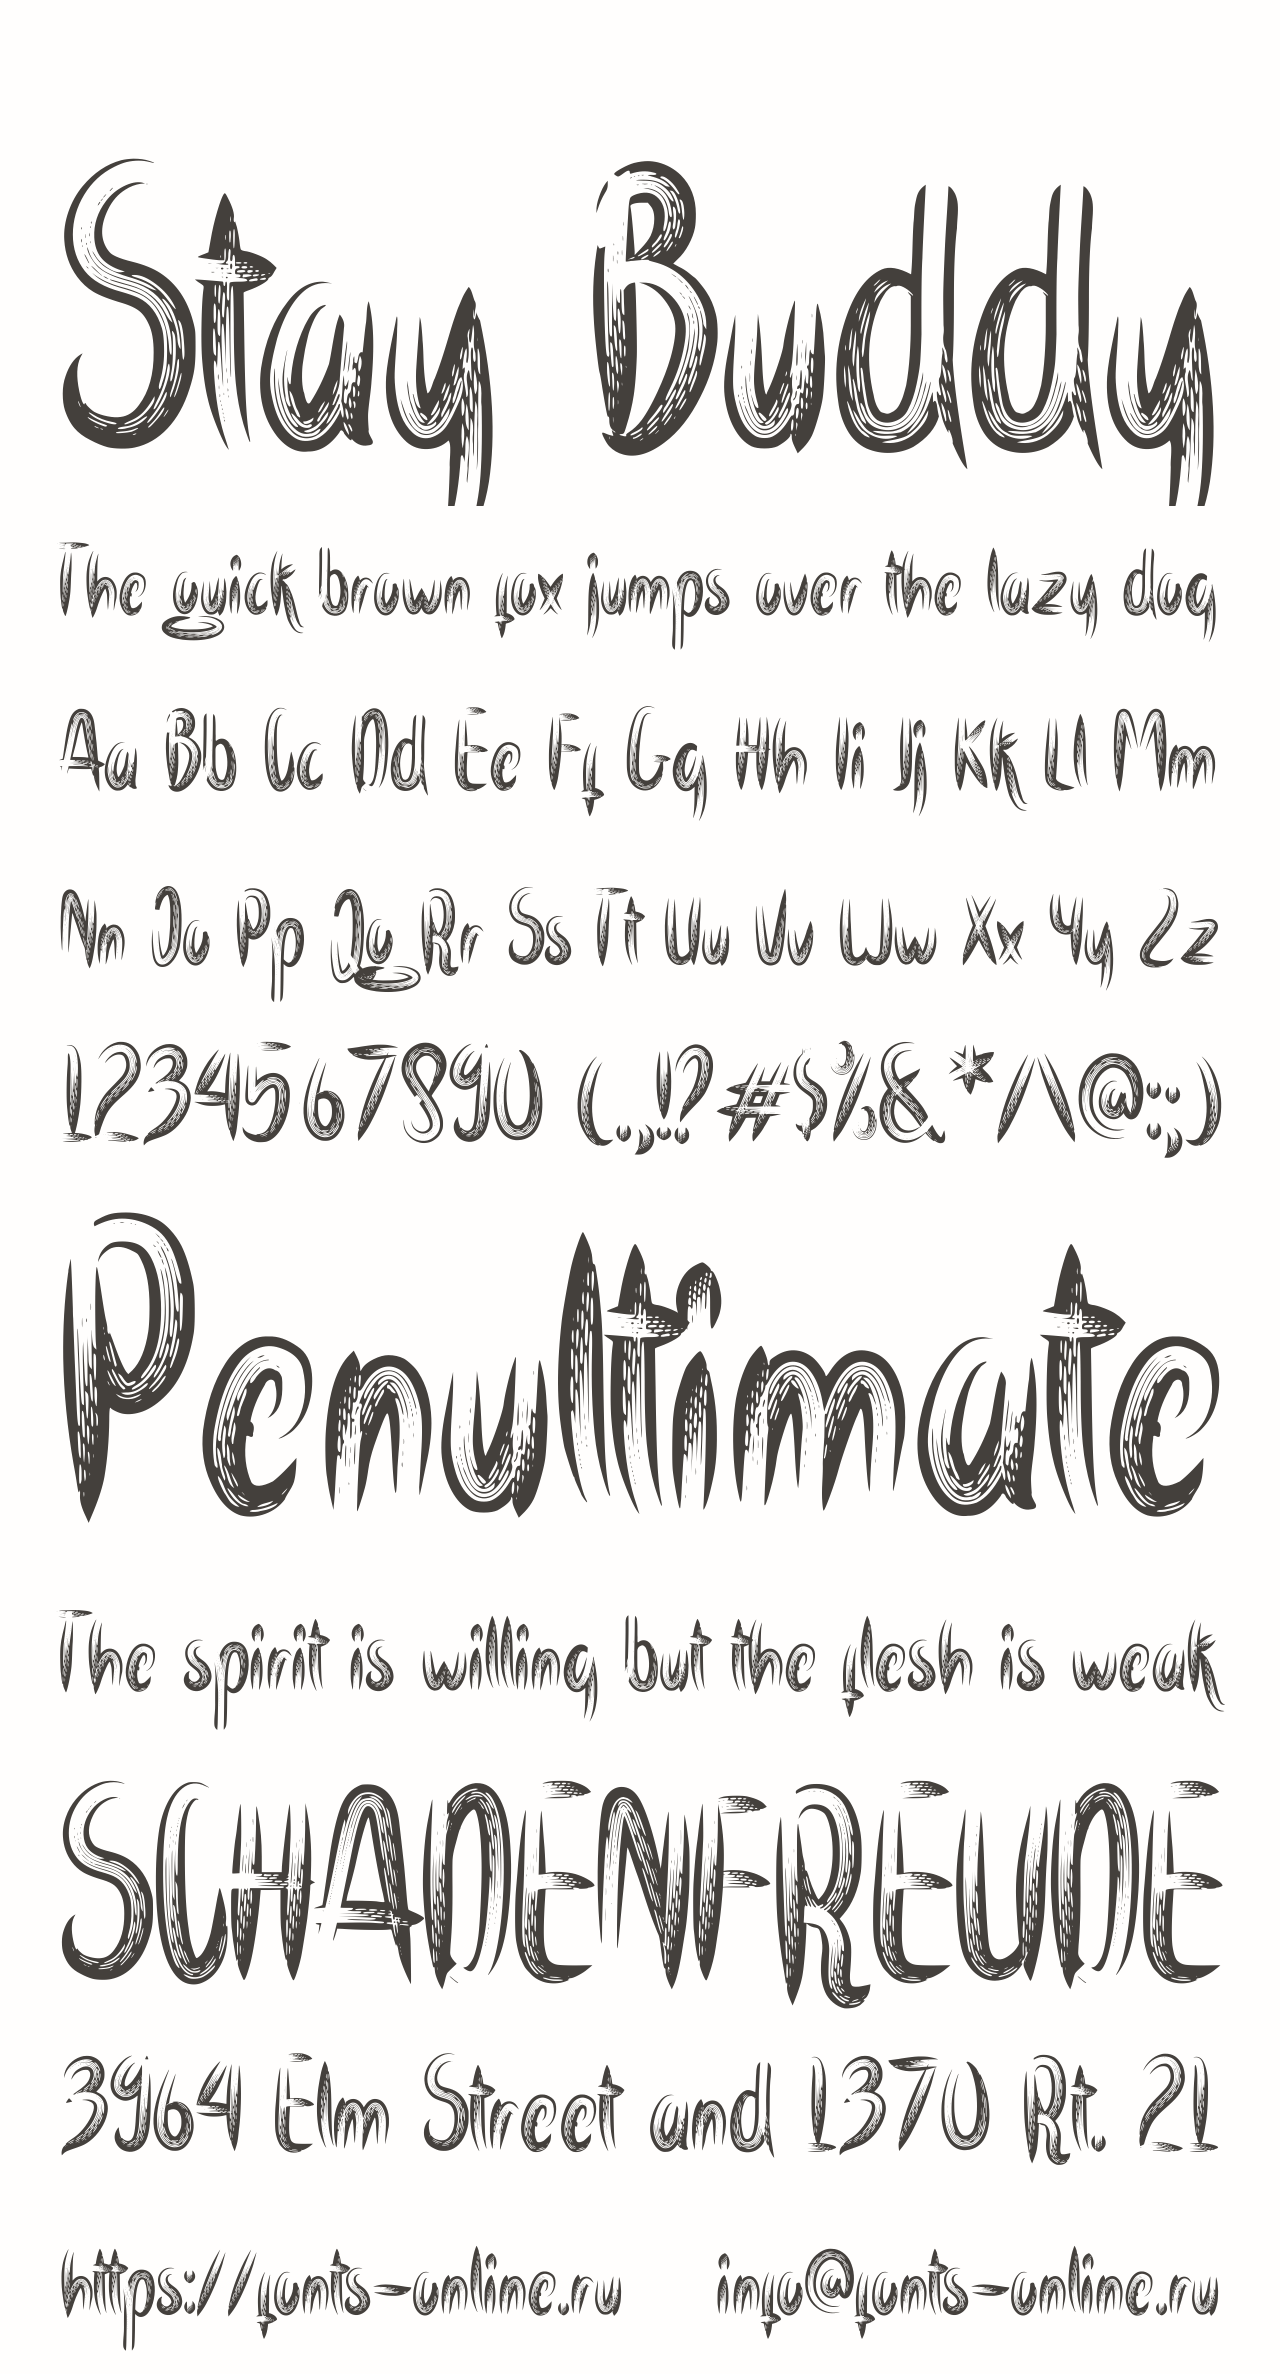 Stay Buddy
The quick brown fox jumps over the lazy dog
Aa Bb Cc Dd Ee Ff Gg Hh Ii Jj Kk Ll Mm
Nn Oo Pp Qq Rr Ss Tt Uu Vv Ww Xx Yy Zz
1234567890 (.,!? #$%& * /\ @:;)
Penultimate
The spirit is willing but the flesh is weak
SCHADENFREUDE
3964 Elm Street and 1370 Rt. 21
https://fonts-online.ru info@fonts-online.ru